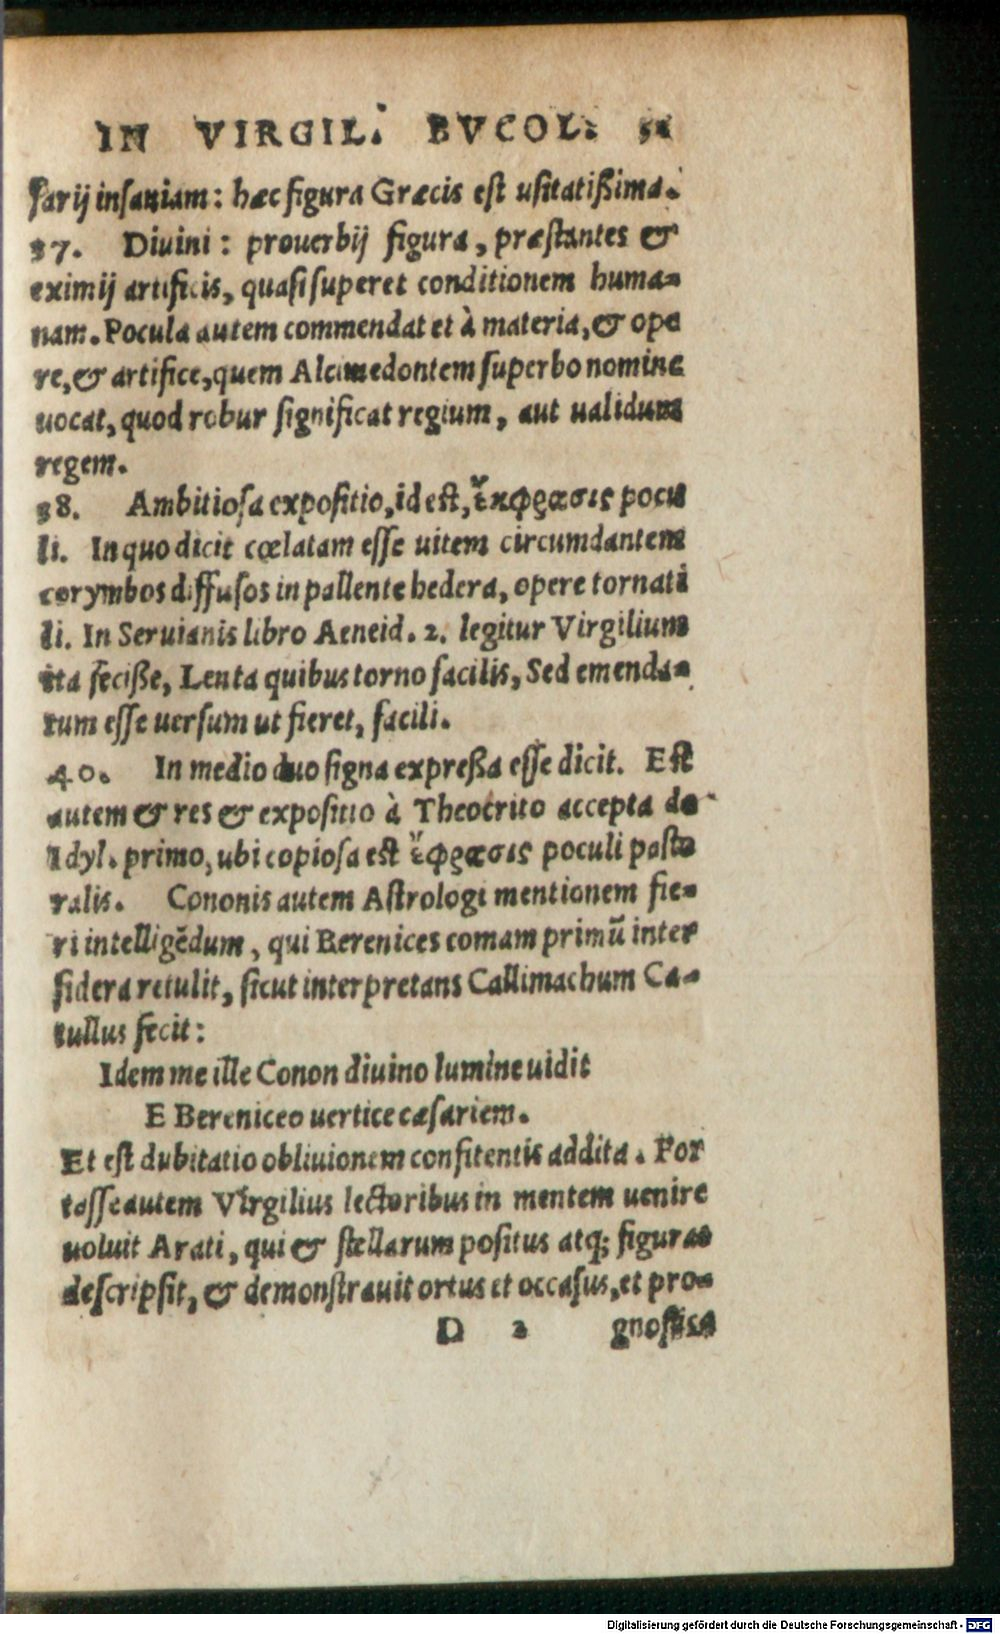 IN VIRGIL. BVCOL.
sarij insaniam: hæc figura Græcis est usitatißima.
37. Diuini: prouerbij figura, præstantes &
eximij artificis, quasi superet conditionem huma-
nam. Pocula autem commendat et à materia, & ope
re, & artifice, quem Alcimedontem superbo nomine
uocat, quod robur significat regium, aut ualidum
regem.
38. Ambitiosa expositio, id est, ἔκφρασις pocu
li. In quo dicit cœlatam esse uitem circumdantem
corymbos diffusos in pallente hedera, opere tornati
li. In Seruianis libro Aeneid. 2. legitur Virgilium
ita feciße, Lenta quibus torno facilis, Sed emenda-
tum esse uersum ut fieret, facili.
40. In medio duo signa expreßa esse dicit. Est
autem & res & expositio à Theocrito accepta de
Idyl. primo, ubi copiosa est ἔφρασις poculi pasto
ralis. Cononis autem Astrologi mentionem fie-
ri intelligẽdum, qui Berenices comam primũ inter
sidera retulit, sicut interpretans Callimachum Ca-
tullus fecit:
Idem me ille Conon diuino lumine uidit
E Bereniceo uertice cæsariem.
Et est dubitatio obliuionem confitentis addita. For
tasse autem Virgilius lectoribus in mentem uenire
uoluit Arati, qui & stellarum positus atq; figuras
descripsit, & demonstrauit ortus et occasus, et pro-
D 2 gnostica
Digitalisierung gefördert durch die Deutsche Forschungsgemeinschaft - DFG